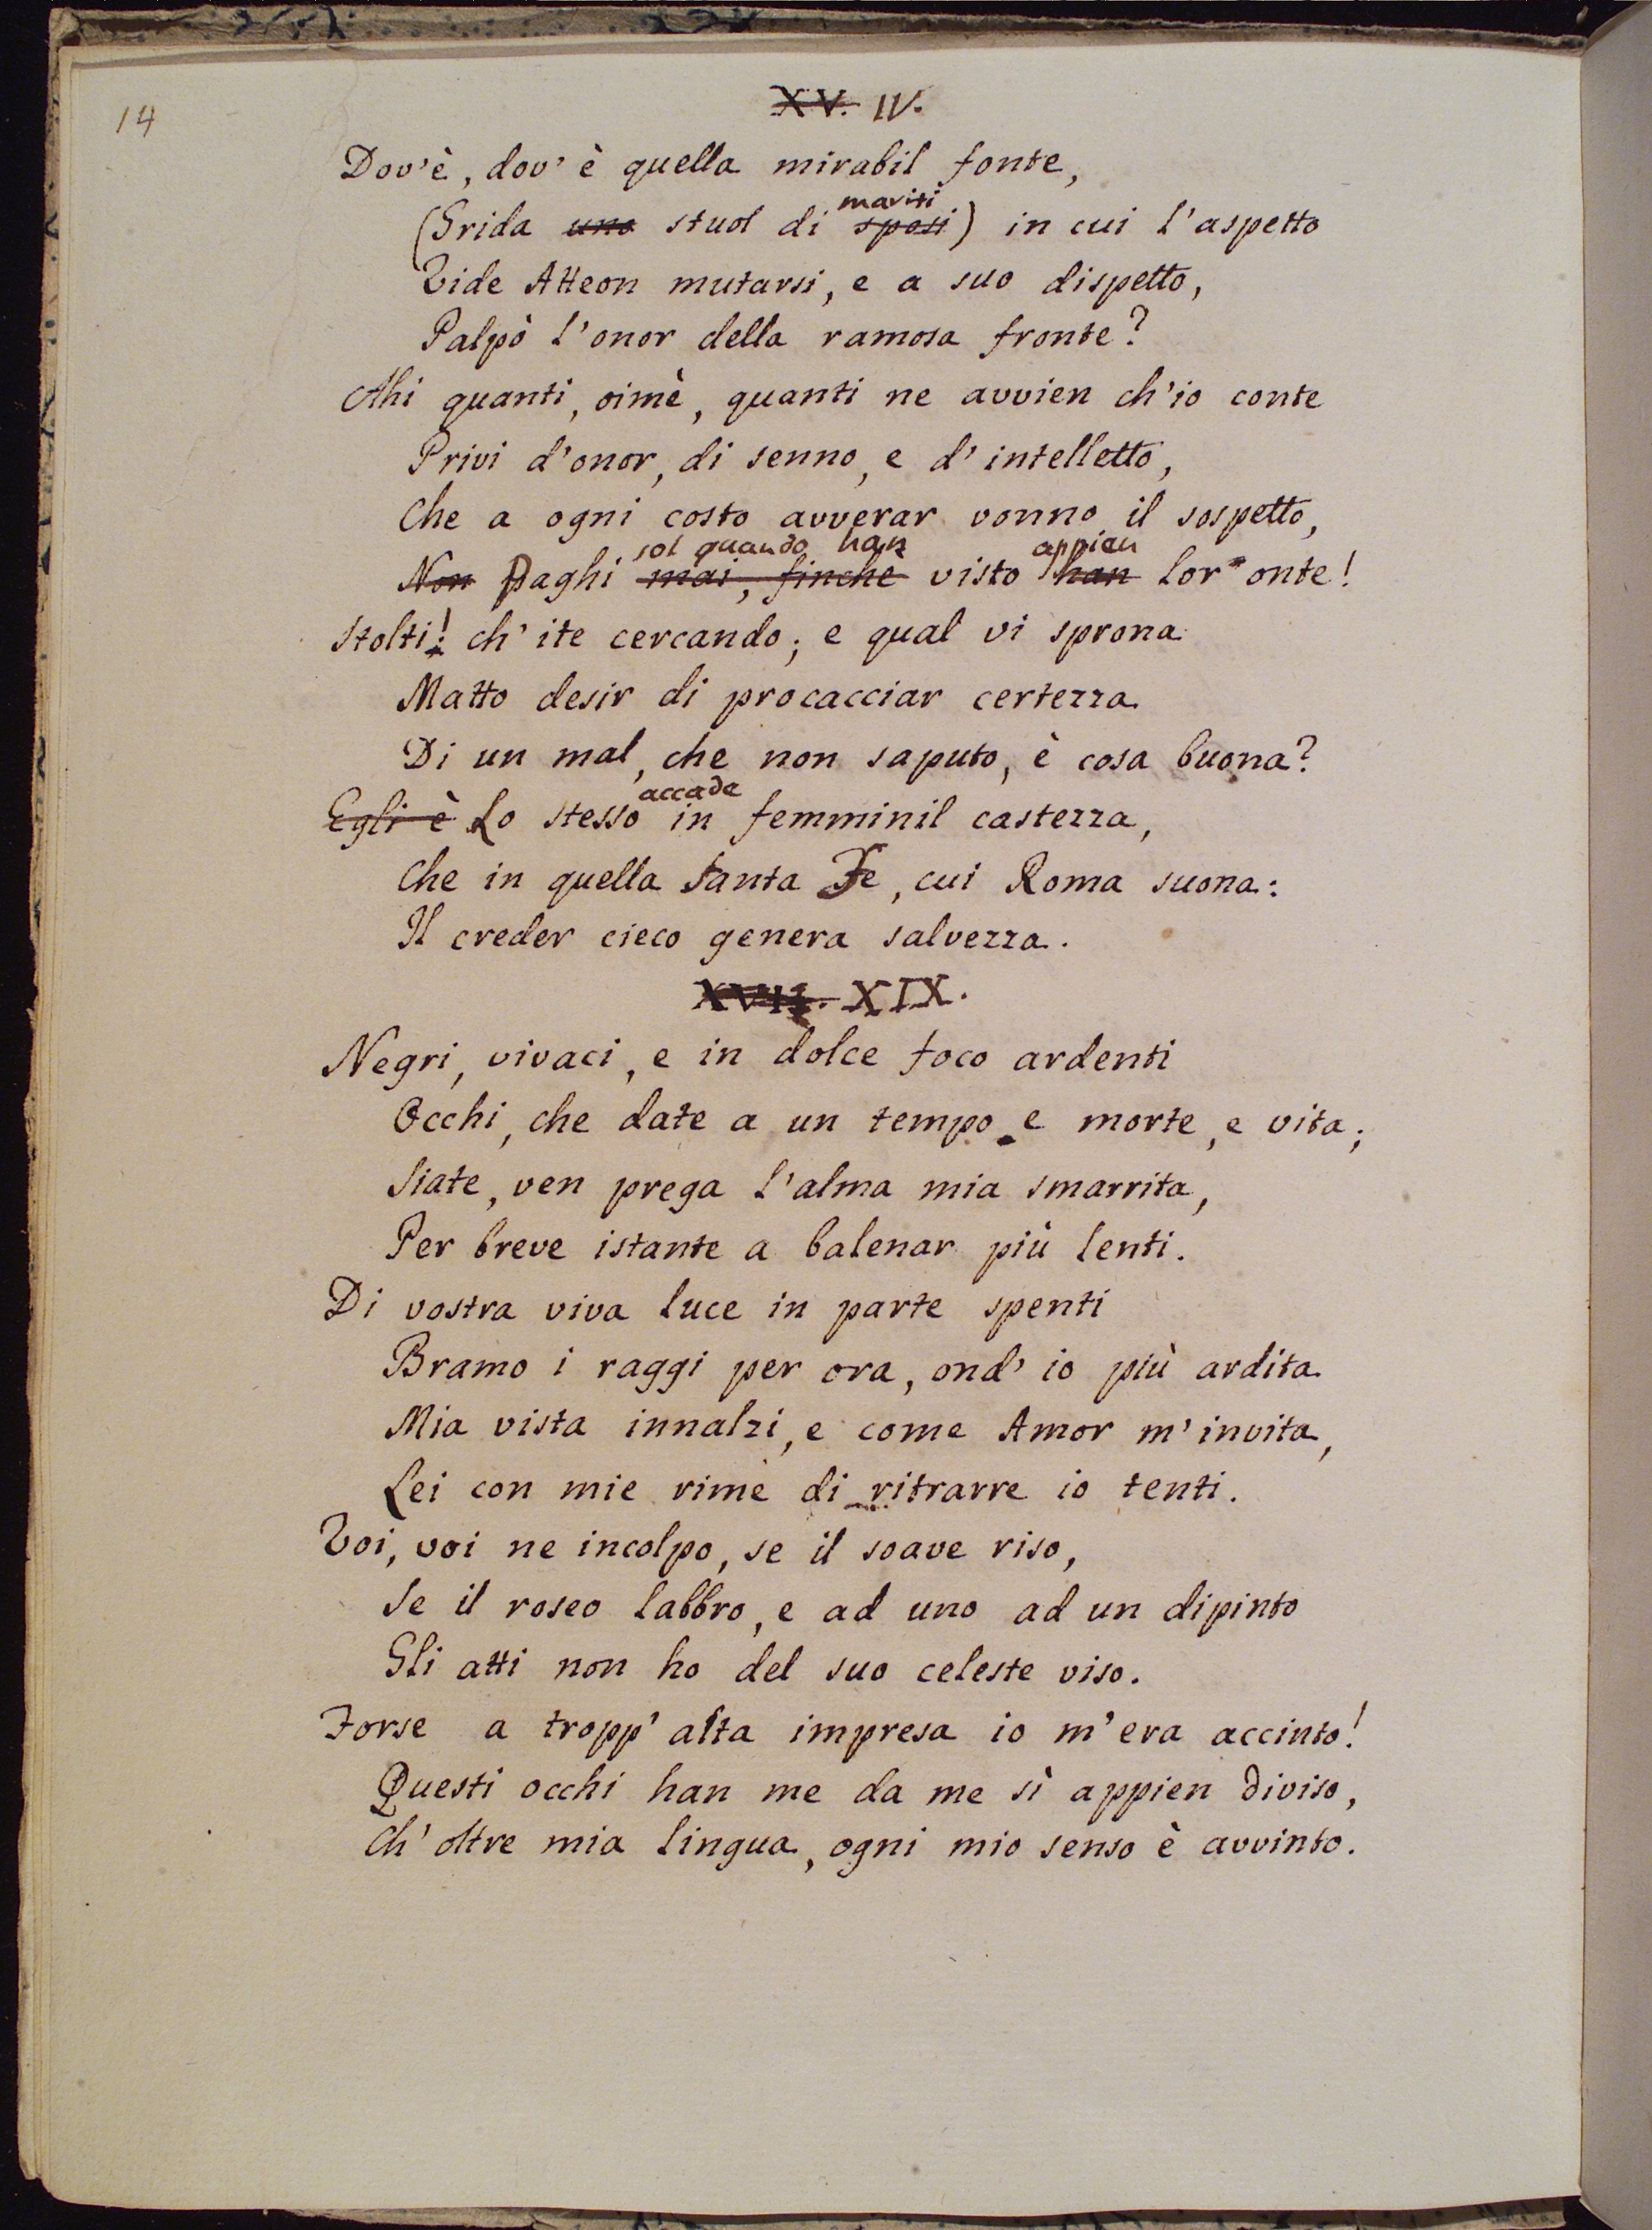 14
XV. IV.
Dov'è, dov'è quella mirabil fonte,
mariti
(Grida uno stuol di sposi) in cui l'aspetto
Vide Atteon mutarsi, e a suo dispetto,
Palpò l'onor della ramosa fronte?
Ahi quanti, oimè, quanti ne avvien ch'io conte
Privi d'onor, di senno, e d'intelletto,
Che a ogni costo avverar vonno il sospetto,
sol quando han appien
Non Paghi mai, finche visto han lor onte!
Stolti! ch'ite cercando; e qual vi sprona
Matto desir di procacciar certezza
Di un mal, che non saputo, è cosa buona?
accade
Egli è Lo stesso in femminil castezza,
Che in quella Santa Fe, cui Roma suona:
Il creder cieco genera salvezza.
XVII. XIX.
Negri, vivaci, e in dolce foco ardenti
Occhi, che date a un tempo e morte, e vita;
Siate, ven prega l'alma mia smarrita,
Per breve istante a balenar più lenti.
Di vostra viva luce in parte spenti
Bramo i raggi per ora, ond'io più ardita
Mia vista innalzi, e come Amor m'invita,
Lei con mie rime di ritrarre io tenti.
Voi, voi ne incolpo, se il soave riso,
Se il roseo labbro, e ad uno ad un dipinto
Gli atti non ho del suo celeste viso.
Forse a tropp'alta impresa io m'era accinto!
Questi occhi han me da me sì appien diviso,
Ch'oltre mia lingua, ogni mio senso è avvinto.